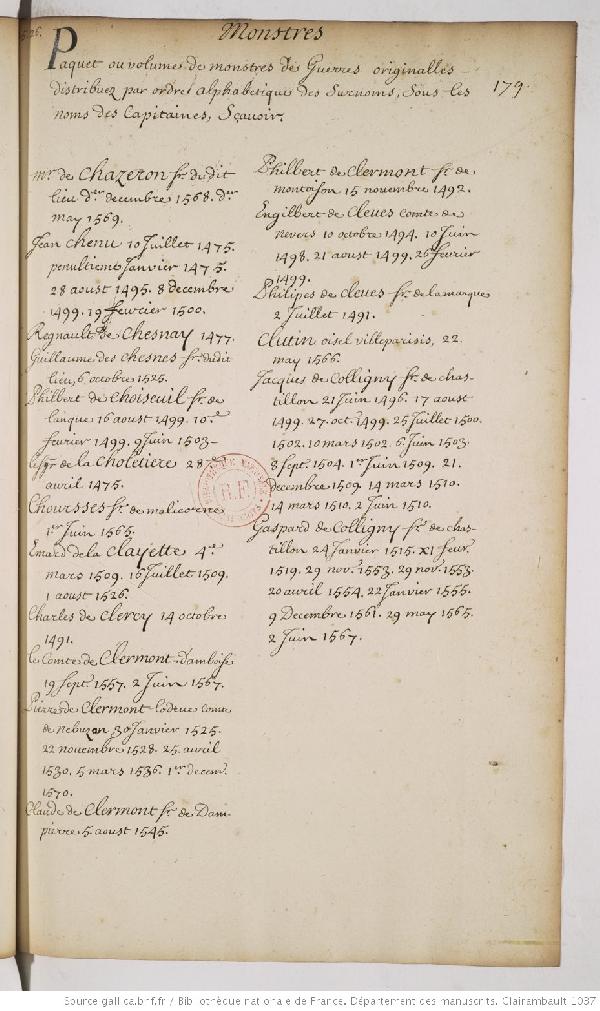 Monstres
Paquet ou volumes de monstres de Guerres originalles
distribuez par ordre alphabetique des Surnoms, Sous les
noms des Capitaines, Sçavoir.
179.
mr. de Chazeron sr. dudit
lieu der. decembre 1568. der.
may 1569.
Jean Chenu 10 Juillet 1475.
penultieme Janvier 1475.
28 aoust 1495. 8 decembre
1499. 19 fevrier 1500.
Regnault de Chesnay 1477.
Guillaume des Chesnes sr. dudit
lieu, 6 octobre 1525.
Philbert de Choiseuil sr. de
lanque 16 aoust 1499. 10.e
fevrier 1499. 9 Juin 1503.
le sr. de la Choletiere 28
avril 1475.
Choursses sr. de malicorne
1er Juin 1565.
Emard de la Clayette 4e.
mars 1509. 16 Juillet 1509.
1 aoust 1526.
Charles de Clercy 14 octobre
1491.
le Comte de Clermont d'amboise
19 Sept. 1557. 2 Juin 1567.
Pierre de Clermont lodeve comte
de Nebuzan 30 Janvier 1525.
22 novembre 1528. 25. avril
1530. 5 mars 1536. 1er decem.
1570.
Claude de Clermont sr. de Dam-
pierre 5. aoust 1545.
Philbert de Clermont sr. de
montoison 15 novembre 1492.
Engilbert de Cleves comte de
Nevers 10 octobre 1494. 10 Juin
1498. 21 aoust 1499. 26 fevrier
1499.
Philipes de Cleves sr. de la marque
2 Juillet 1491.
Clutin oisel villeparisis, 22.
may 1566.
Jacques de Colligny sr. de chas-
tillon 21 Juin 1496. 17 aoust
1499. 27. oct. 1499. 25 Juillet 1500.
1502. 10 mars 1502. 6 Juin 1503.
8 Sept. 1504. 1er Juin 1509. 21.
decembre 1509. 14 mars 1510.
14 mars 1510. 2 Juin 1510.
Gaspard de Colligny sr. de chas-
tillon 24 Janvier 1515. XI fevr.
1519. 29 nov. 1553. 29 nov. 1553.
20 avril 1554. 22 Janvier 1555.
9 Decembre 1561. 29 may 1565.
2 Juin 1567.
R.F.
Source gallica.bnf.fr / Bibliothèque nationale de France. Département des manuscrits. Clairambault 1087